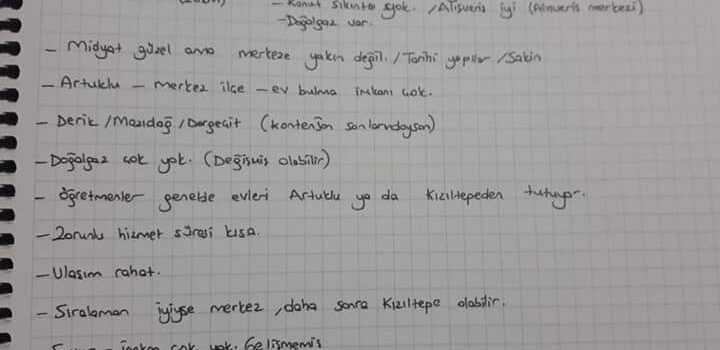 - Konut sıkıntısı yok. / Alışveriş iyi (Alışveriş merkezi)
- Doğalgaz var.
- Midyat güzel ama merkeze yakın değil. / Tarihi yapılar / Sakin
- Artuklu - merkez ilçe - ev bulma imkanı çok.
- Derik / Mazıdağ / Dargeçit (kontenjan sonlarındaysan)
- Doğalgaz çok yok. (Değişmiş olabilir)
- öğretmenler genelde evleri Artuklu ya da Kızıltepeden tutuyor.
- Zorunlu hizmet süresi kısa.
- Ulaşım rahat.
- Sıralaman iyiyse merkez, daha sonra Kızıltepe olabilir.
imkan çok yok. Gelişmemiş